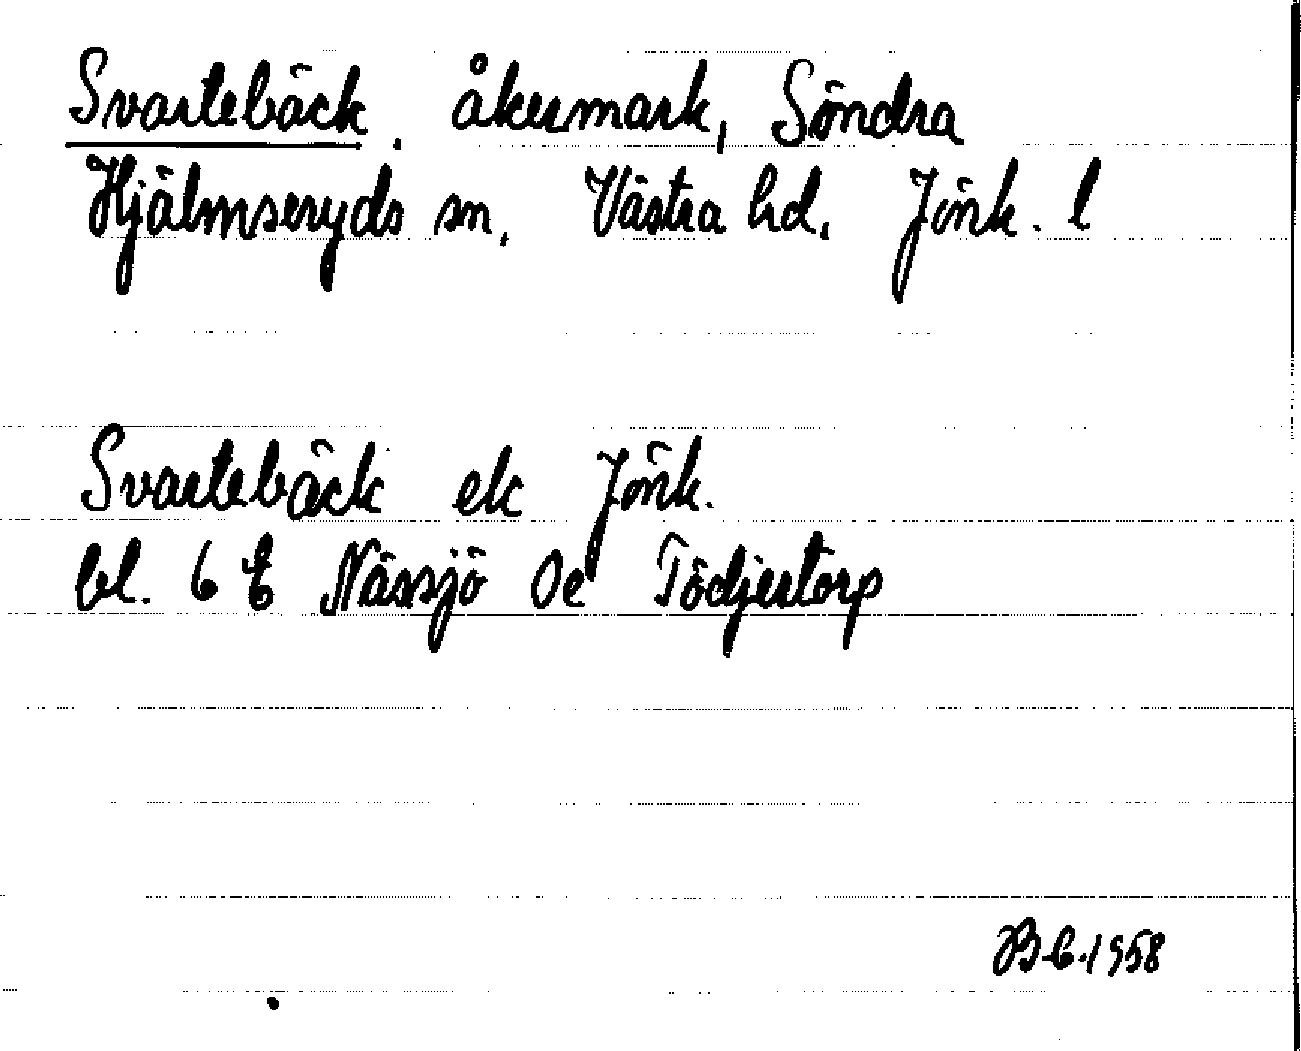 Svartebäck. åkermark, Söndra
Hjälmseryds sn. Västra hd. Jönk. l
Svartebäck ek Jönk.
bl. 6 E Nässjö 0e Tödjertorp
B.C. 1958